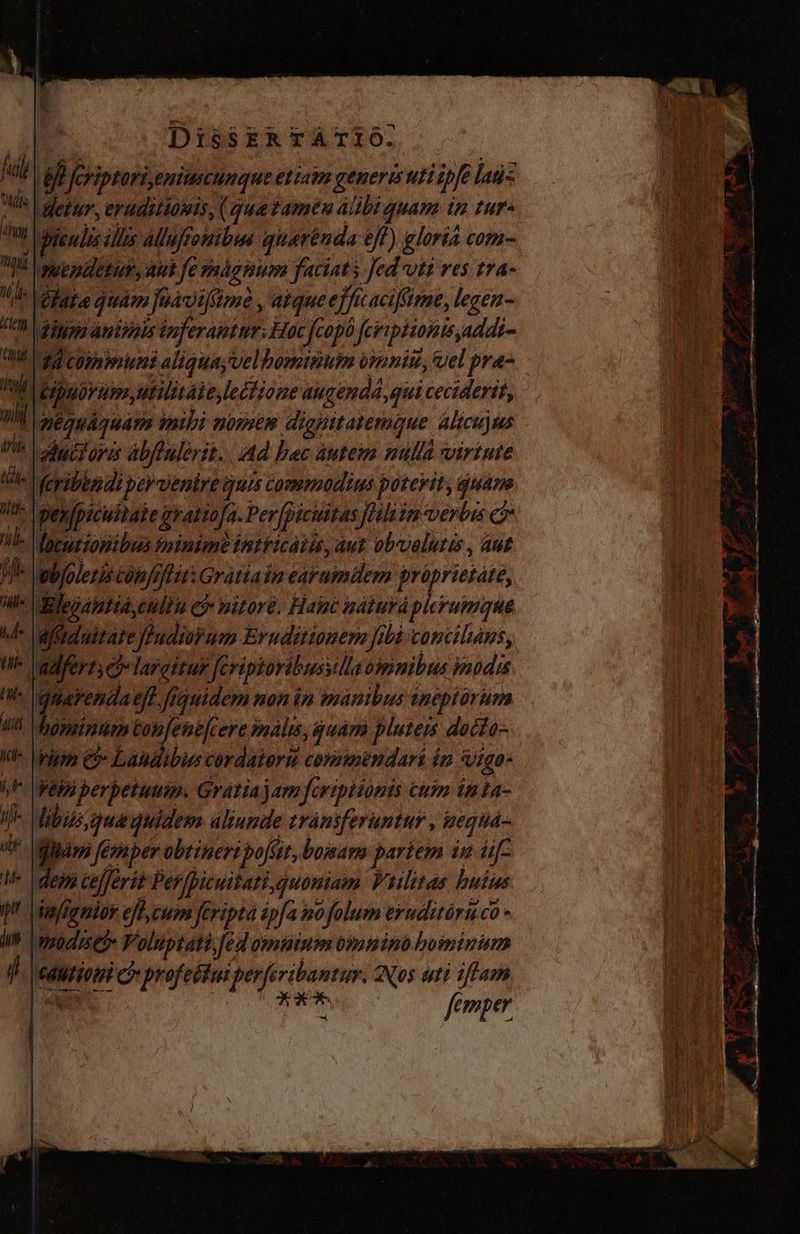 DISSERTATIO.
est scriptori, eniuscunque etiam generis uti ipse lau-
detur, eruditionis, (qua tamen alibi quam in tur-
piculis illis allusionibus quarenda est) gloriâ com-
mendetur, aut se magnum faciat; sed uti res tra-
ctata quam suavissimè, atque efficacissime, legen-
tium animis inferantur: Hoc scopò scriptionis, addi-
tâ communi aliqua, vel hominum omniũ, vel pra-
cipuorum, utilitate, lectione augendâ, qui ceciderit,
néquáquam mihi nomen dignitatemque alicujus
Auctoris abstulerit. Ad hac autem nullâ virtute
scribendi pervenire quis commodius poterit, quam
perspicuitate gratiosa. Perspicuitas stili in verbis &
locutionibus minimè intricatis, aut obvolutis, aut
obsoletis consistit: Gratia in earumdem proprietate,
Elegantiâ, cultu & nitorè. Hanc naturâ plerumque
assiduitate studiorum Eruditionem sibi concilians,
adfert, & largitur scriptoribus, illa omnibus modis
quarenda est. siquidem non in manibus ineptorum
hominum consenescere malis, quàm pluteis docto-
rum & Laudibus cordatorũ commendari in vigo-
rem perpetuum. Gratia jam scriptionis cum in ta-
libus, qua quidem aliunde transferuntur, nequa-
quàm semper obtineri possit, bonam partem in iis-
dem cesserit Perspicuitati, quoniam Vtilitas huius
insignior est, cum scripta ipsa nõ solum eruditorũ cõ-
modis & Voluptati, sed omnium omninò hominum
cautioni & profectui perscribantur. Nos uti istam
*** semper